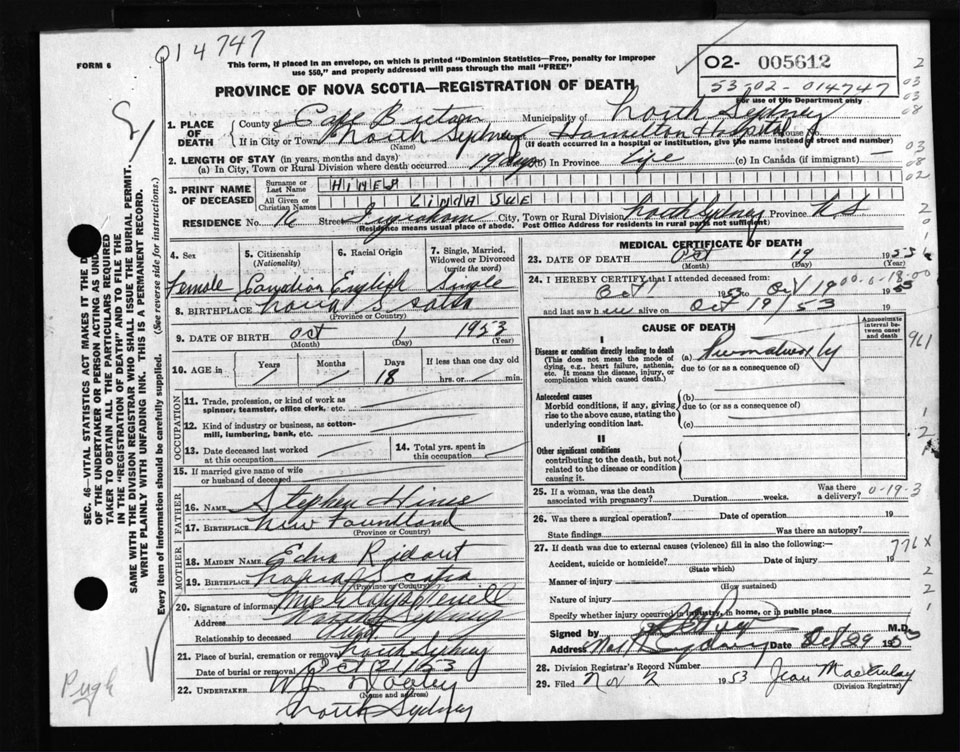 014747
FORM 6
This form, if placed in an envelope, on which is printed "Dominion Statistics—Free, penalty for improper
use $50," and properly addressed will pass through the mail "FREE"
O2- 005612
53-02-014747
For use of the Department only
PROVINCE OF NOVA SCOTIA—REGISTRATION OF DEATH
1. PLACE OF DEATH
County of Cape Breton Municipality of North Sydney
If in City or Town North Sydney Hamilton Hospital House No.
(Name) (If death occurred in a hospital or institution, give the name instead of street and number)
2. LENGTH OF STAY (in years, months and days)
(a) In City, Town or Rural Division where death occurred 19 days (b) In Province Life (c) In Canada (if immigrant) —
3. PRINT NAME OF DECEASED
Surname or Last Name HINES
All Given or Christian Names LINDA SUE
RESIDENCE No. 76 Street Ingraham City, Town or Rural Division North Sydney Province N S
(Residence means usual place of abode. Post Office Address for residents in rural parts not sufficient)
4. Sex Female
5. Citizenship (Nationality) Canadian
6. Racial Origin English
7. Single, Married, Widowed or Divorced (write the word) Single
8. BIRTHPLACE Nova Scotia
(Province or Country)
9. DATE OF BIRTH Oct 1 1953
(Month) (Day) (Year)
10. AGE in Years Months Days 18 If less than one day old hrs. or min.
OCCUPATION
11. Trade, profession, or kind of work as
spinner, teamster, office clerk, etc.
12. Kind of industry or business, as cotton-
mill, lumbering, bank, etc.
13. Date deceased last worked
at this occupation
14. Total yrs. spent in
this occupation
15. If married give name of wife
or husband of deceased
FATHER
16. NAME Stephen Hines
17. BIRTHPLACE New Foundland
(Province or Country)
MOTHER
18. MAIDEN NAME Edna Ridout
19. BIRTHPLACE Nova Scotia
(Province or Country)
20. Signature of informant Mrs
Address North Sydney
Relationship to deceased Aunt
21. Place of burial, cremation or removal North Sydney
Date of burial or removal Oct 21/53
22. UNDERTAKER W.J. Dooley
(Name and address)
North Sydney
MEDICAL CERTIFICATE OF DEATH
23. DATE OF DEATH Oct 19 1953
(Month) (Day) (Year)
24. I HEREBY CERTIFY that I attended deceased from
Oct 1 1953 to Oct 19 1953
and last saw h alive on Oct 19 / 53
00-0-18-00
CAUSE OF DEATH
Approximate interval between onset and death
I
Disease or condition directly leading to death
(This does not mean the mode of
dying, e.g., heart failure, asthenia,
etc. It means the disease, injury, or
complication which caused death.)
(a) Prematurity
due to (or as a consequence of)
Antecedent causes
Morbid conditions, if any, giving
rise to the above cause, stating the
underlying condition last.
(b)
due to (or as a consequence of)
(c)
II
Other significant conditions
contributing to the death, but not
related to the disease or condition
causing it.
25. If a woman, was the death
associated with pregnancy? Duration weeks. Was there a delivery?
0-19-3
26. Was there a surgical operation? Date of operation 19
State findings Was there an autopsy?
27. If death was due to external causes (violence) fill in also the following:—
Accident, suicide or homicide? Date of 19
(State which)
776X
Manner of injury
(How sustained)
Nature of injury
Specify whether injury occurred in industry, in home, or in public place
Signed by M.D.
Address North Sydney Date Oct 29 1953
28. Division Registrar's Record Number
29. Filed Nov 2 1953 Jean
(Division Registrar)
SEC. 46—VITAL STATISTICS ACT MAKES IT THE D
OF THE UNDERTAKER OR PERSON ACTING AS UND
TAKER TO OBTAIN ALL THE PARTICULARS REQUIRED
IN THE "REGISTRATION OF DEATH" AND TO FILE THE
SAME WITH THE DIVISION REGISTRAR WHO SHALL ISSUE THE BURIAL PERMIT.
WRITE PLAINLY WITH UNFADING INK. THIS IS A PERMANENT RECORD.
Every item of information should be carefully supplied. (See reverse side for instructions.)
Pugh